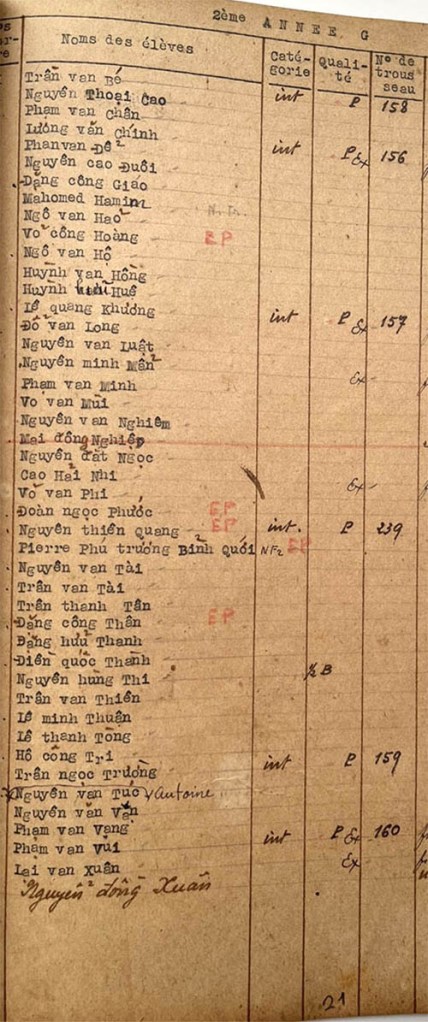 2ème ANNEE G
Noms des élèves Caté-gorie Quali-té N° de trousseau
Trần van Bé
Nguyễn Thoại Cao int P 158
Phạm van Chẩn
Lương văn Chính
Phan van Dê int P Ex 156
Nguyễn cao Đuôi
Đặng công Giáo
Mahomed Hamim
Ngô van Hao
Vo công Hoàng EP
Ngô van Hộ
Huỳnh van Hồng
Huỳnh Huê
Lê quang Khương
Đỗ van Long int P Ex 157
Nguyễn van Luật
Nguyễn minh Mẫn
Phạm van Minh Ex
Vo van Mùi
Nguyễn van Nghiêm
Mai đông Nghiệp
Nguyễn đắt Ngọc
Cao Hải Nhi
Võ van Phi Ex
Đoàn ngọc Phước EP
Nguyễn thiên quang EP int. P 239
Pierre Phú trương Bỉnh Quới EP
Nguyễn van Tài
Trần van Tài
Trần thanh Tân
Đặng công Thân EP
Đặng hưu Thanh
Điền quốc Thanh
Nguyễn hùng Thi ½ B
Trần van Thiên
Lê minh Thuận
Lê thanh Tòng
Hồ công Tri int P 159
Trần ngọc Trượng
Nguyễn van Tước Antoine
Nguyễn văn Vân
Phạm van Vạng int P Ex 160
Phạm van Vui Ex
Lại van Xuân
Nguyễn đông Xuân
21